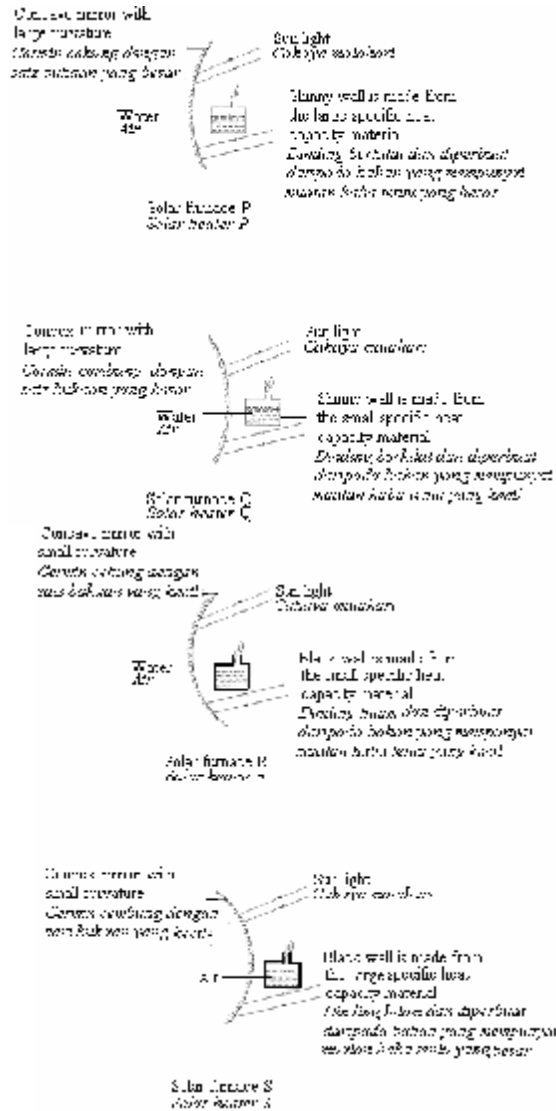 Concave mirror with
large curvature
Cermin cekung dengan
yang besar
Sun light
Cahaya matahari
Water
Air
Shinny wall is made from
the large specific heat
capacity material
Dinding berkilat dan diperbuat
daripada bahan yang mempunyai
muatan haba tentu yang besar
Solar furnace P
Solar heater P
Convex mirror with
large curvature
Cermin cembung dengan
yang besar
Sun light
Cahaya matahari
Water
Air
Shinny wall is made from
the small specific heat
capacity material
Dinding berkilat dan diperbuat
daripada bahan yang mempunyai
muatan haba tentu yang kecil
Solar furnace Q
Solar heater Q
Concave mirror with
small curvature
Cermin cekung dengan
yang kecil
Sun light
Cahaya matahari
Water
Air
Black wall is made from
the small specific heat
capacity material
Dinding hitam dan diperbuat
daripada bahan yang mempunyai
muatan haba tentu yang kecil
Solar furnace R
Solar heater
Convex mirror with
small curvature
Cermin cembung dengan
yang kecil
Sun light
Cahaya matahari
Air
Black wall is made from
the large specific heat
capacity material
dan diperbuat
daripada bahan yang mempunyai
haba tentu yang besar
Solar furnace S
Solar heater S